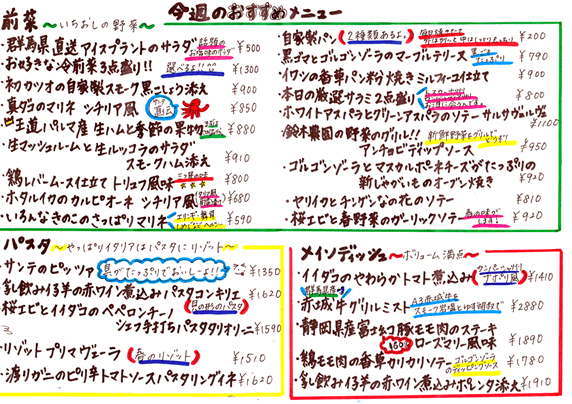 今週のおすすめメニュー
前菜 〜いちおしの野菜〜
・群馬県直送アイスプラントのサラダ ¥500
・お好きな冷前菜3点盛り!! 選べるよ!! ¥1300
・初カツオの自家製スモーク黒こしょう添え ¥900
・真ダコのマリネ シチリア風 ¥850
・王道パルマ産生ハムと季節の果物 ¥880
・生マッシュルームと生ルッコラのサラダ
スモークハム添え ¥910
・鶏レバームース仕立て トリュフ風味 ¥800
・ホタルイカのカルピオーネ シチリア風 ¥680
・いろんなきのこのさっぱりマリネ ¥590
・自家製パン (2種類あるよ。) ¥200
・黒ゴマとゴルゴンゾーラのマーブルテリーヌ ¥790
・イワシの香草パン粉焼きミルフィーユ仕立て ¥900
・本日の厳選サラミ2点盛り ¥800
・ホワイトアスパラとグリーンアスパラのソテー サルサヴェルデ ¥1100
・鈴木農園の野菜のグリル!! 新鮮野菜をグリルでどうぞ
アンチョビディップソース ¥950
・ゴルゴンゾーラとマスカルポーネチーズがたっぷりの
新じゃがいものオーブン焼き ¥920
・ヤリイカとチンゲン菜の花のソテー ¥810
・桜エビと春野菜のガーリックソテー 春の味が ¥920
パスタ 〜やっぱりイタリアはパスタにリゾット〜
・サンテのピッツァ 具がたっぷりでおいしーよ!! ¥1350
・乳飲み仔羊の赤ワイン煮込みパスタコンキリエ ¥1620
・桜エビとイイダコのペペロンチーノ (貝の形のパスタ)
シェフ手打ちパスタタリオリーニ ¥1590
・リゾットプリマヴェーラ (春のリゾット) ¥1510
・渡りガニのピリ辛トマトソースパスタリングイネ ¥1620
メインディッシュ 〜ボリューム満点〜
・イイダコのやわらかトマト煮込み ナポリ風 ¥1410
群馬県産
・赤城牛グリルミスト A3赤城牛を ¥2880
・静岡県産富士幻豚モモ肉のステーキ
160g ローズマリー風味 ¥1890
・鶏モモ肉の香草カリカリソテー ゴルゴンゾーラのディッピングソース ¥1780
・乳飲み仔羊の赤ワイン煮込みポレンタ添え ¥1910